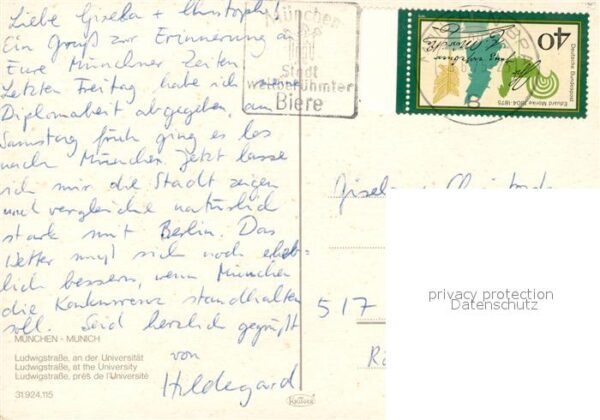 Liebe Gisela + Christoph!
Ein Gruß zur Erinnerung an
Eure Münchner Zeiten.
Letzten Freitag habe ich meine
Diplomarbeit abgegeben, am
Samstag früh ging es los
nach München. Jetzt lasse
ich mir die Stadt zeigen
und vergleiche natürlich
stark mit Berlin. Das
Wetter muß sich noch erheb-
lich bessern, wenn München
die Konkurrenz standhalten
soll. Seid herzlich gegrüßt
von
Hildegard
MÜNCHEN - MUNICH
Ludwigstraße, an der Universität
Ludwigstraße, at the University
Ludwigstraße, près de l'Université
31.924.115
München
Stadt
weltberühmter
Biere
40
Deutsche Bundespost
Eduard Mörike 1804-1875
B
Gisela Christoph
517
privacy protection
Datenschutz
Krüger